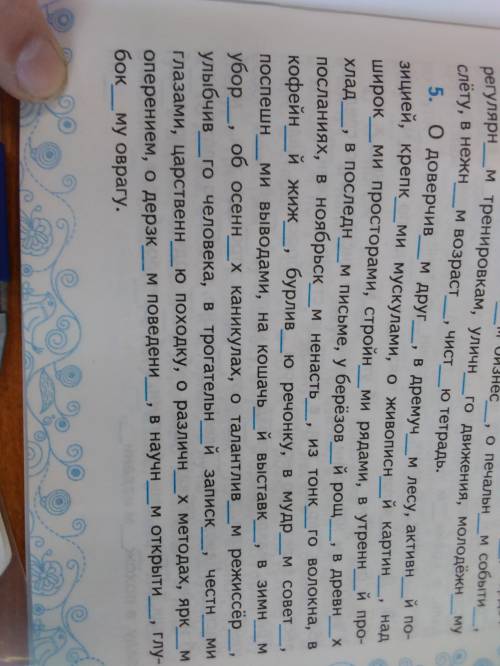 бизнес__, о печальн__м событи__,
регулярн__м тренировкам, уличн__го движения, молодёжн__му
слёту, в нежн__м возраст__, чист__ю тетрадь.
5. О доверчив__м друг__, в дремуч__м лесу, активн__й по-
зицией, крепк__ми мускулами, о живописн__й картин__, над
широк__ми просторами, стройн__ми рядами, в утренн__й про-
хлад__, в последн__м письме, у берёзов__й рощ__, в древн__х
посланиях, в ноябрьск__м ненасть__, из тонк__го волокна, в
кофейн__й жиж__, бурлив__ю речонку, в мудр__м совет__,
поспешн__ми выводами, на кошачь__й выставк__, в зимн__м
убор__, об осенн__х каникулах, о талантлив__м режиссёр__,
улыбчив__го человека, в трогательн__й записк__, честн__ми
глазами, царственн__ю походку, о различн__х методах, ярк__м
оперением, о дерзк__м поведени__, в научн__м открыти__, глу-
бок__му оврагу.